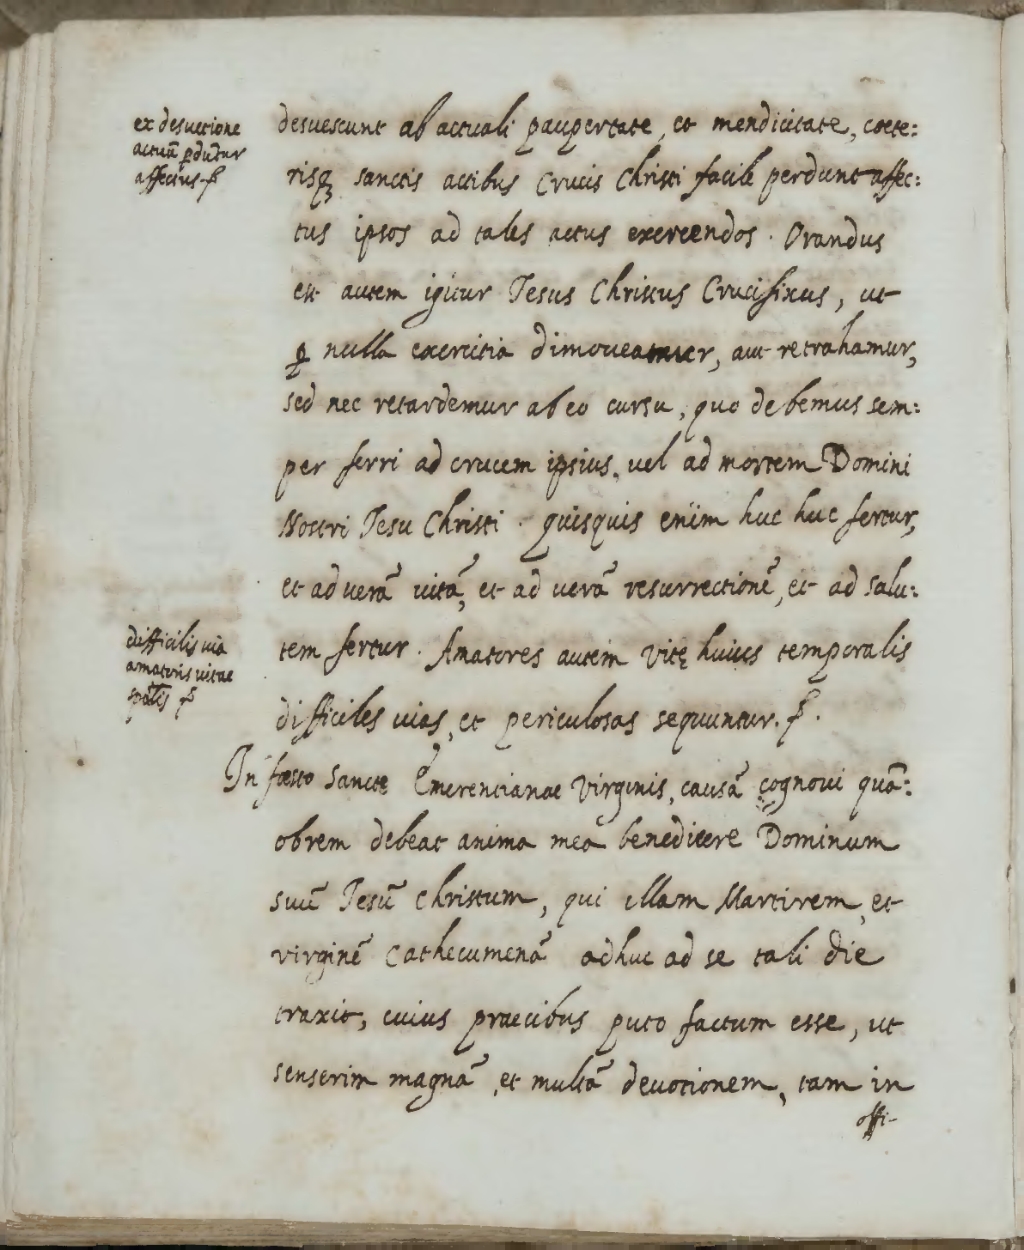 ex desuetione
actuū ꝑdūtur
affectus.
desuescunt ab actuali paupertate, et mendicitate, coete:
risq́ sanctis actibus Crucis Christi facile perdunt affec:
tus ipsos ad tales actus exercendos. Orandus
est autem igitur Jesus Christus Crucifixus, ut
ꝑ nulla exercitia dimoveamur, aut retrahamur,
sed nec retardemur ab eo cursu, quo debemus sem:
per ferri ad crucem ipsius, vel ad mortem Domini
Nostri Jesu Christi. quisquis enim huc huc fertur,
et ad verā vitā, et ad verā resurrectionē, et ad salu:
difficilis via
amatoris vitae
tem fertur. Amatores autem vitę huius temporalis
difficiles vias, et periculosas sequuntur.
In foesto Sanctę Emerentianae Virginis, causā cognovi quā:
obrem debeat anima mea benedicere Dominum
suū Jesū Christum, qui illam Martirem, et
virginē Cathecumenā adhuc ad se tali die
traxit, cuius praecibus puto factum esse, ut
senserim magnā, et multā devotionem, tam in
offi-